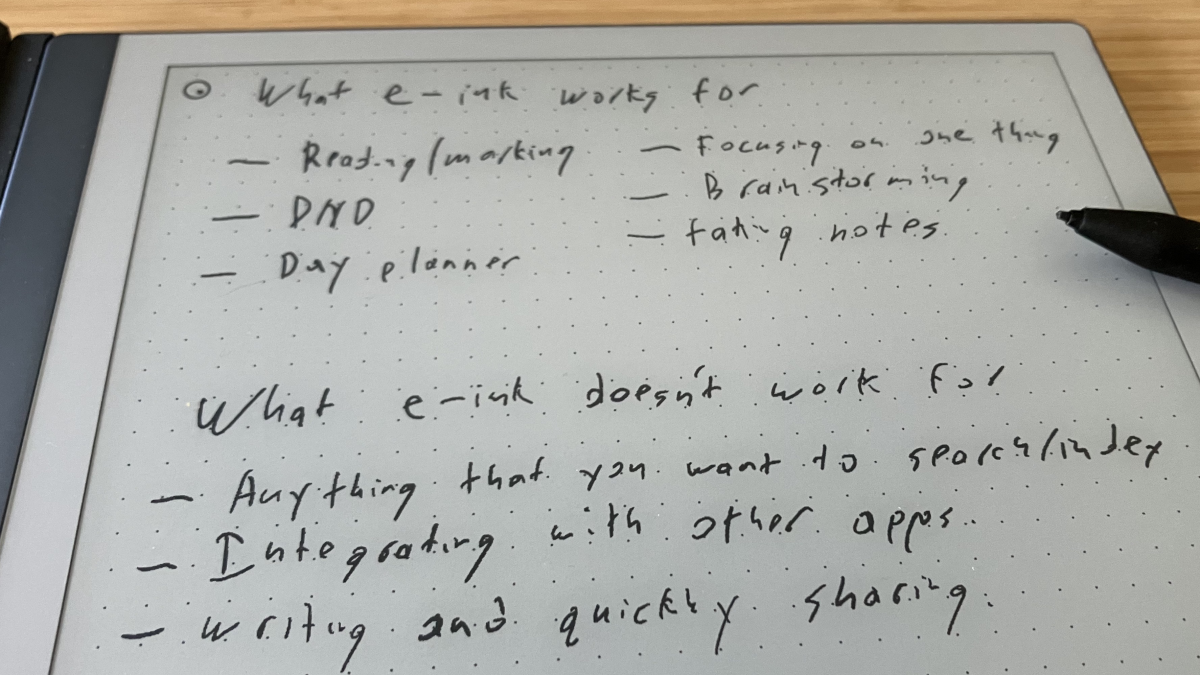 What e-ink works for
— Reading/marking
— DND
— Day planner
— Focusing on one thing
— Brainstorming
— taking notes.
What e-ink doesn't work for
— Anything that you want to search/index
— Integrating with other apps.
— writing and quickly sharing.